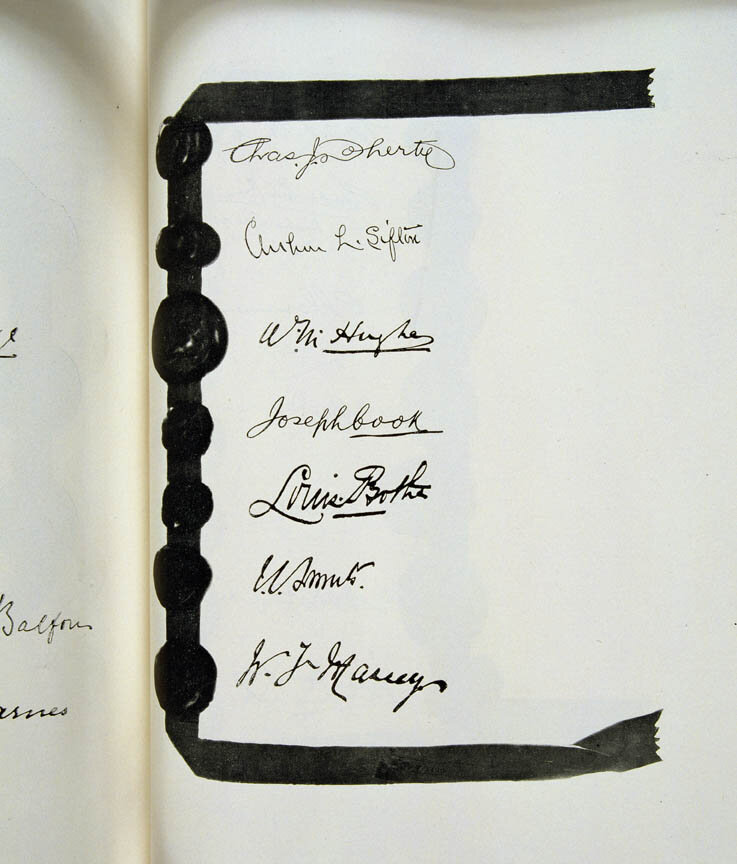 Balfour
arnes
Chas. J. Doherty
Arthur L. Sifton
W. M. Hughes
Joseph Cook
Louis Botha
J. C. Smuts.
W. F. Massey